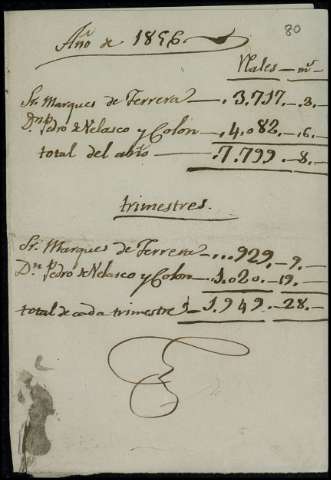 80
Añ.º de 1856.
Rales — m.s
Sr. Marques de Ferrera — .3.717. — 2.
Dn. Pedro de Velasco y Colón — .4.082. — 6.
total del año — .7.799 — 8.
trimestres.
Sr. Marques de Ferrera — ...929. — 9.
Dn. Pedro de Velasco y Colon — 1.020. — 19.
total de cada trimestre — 1.949. — 28.